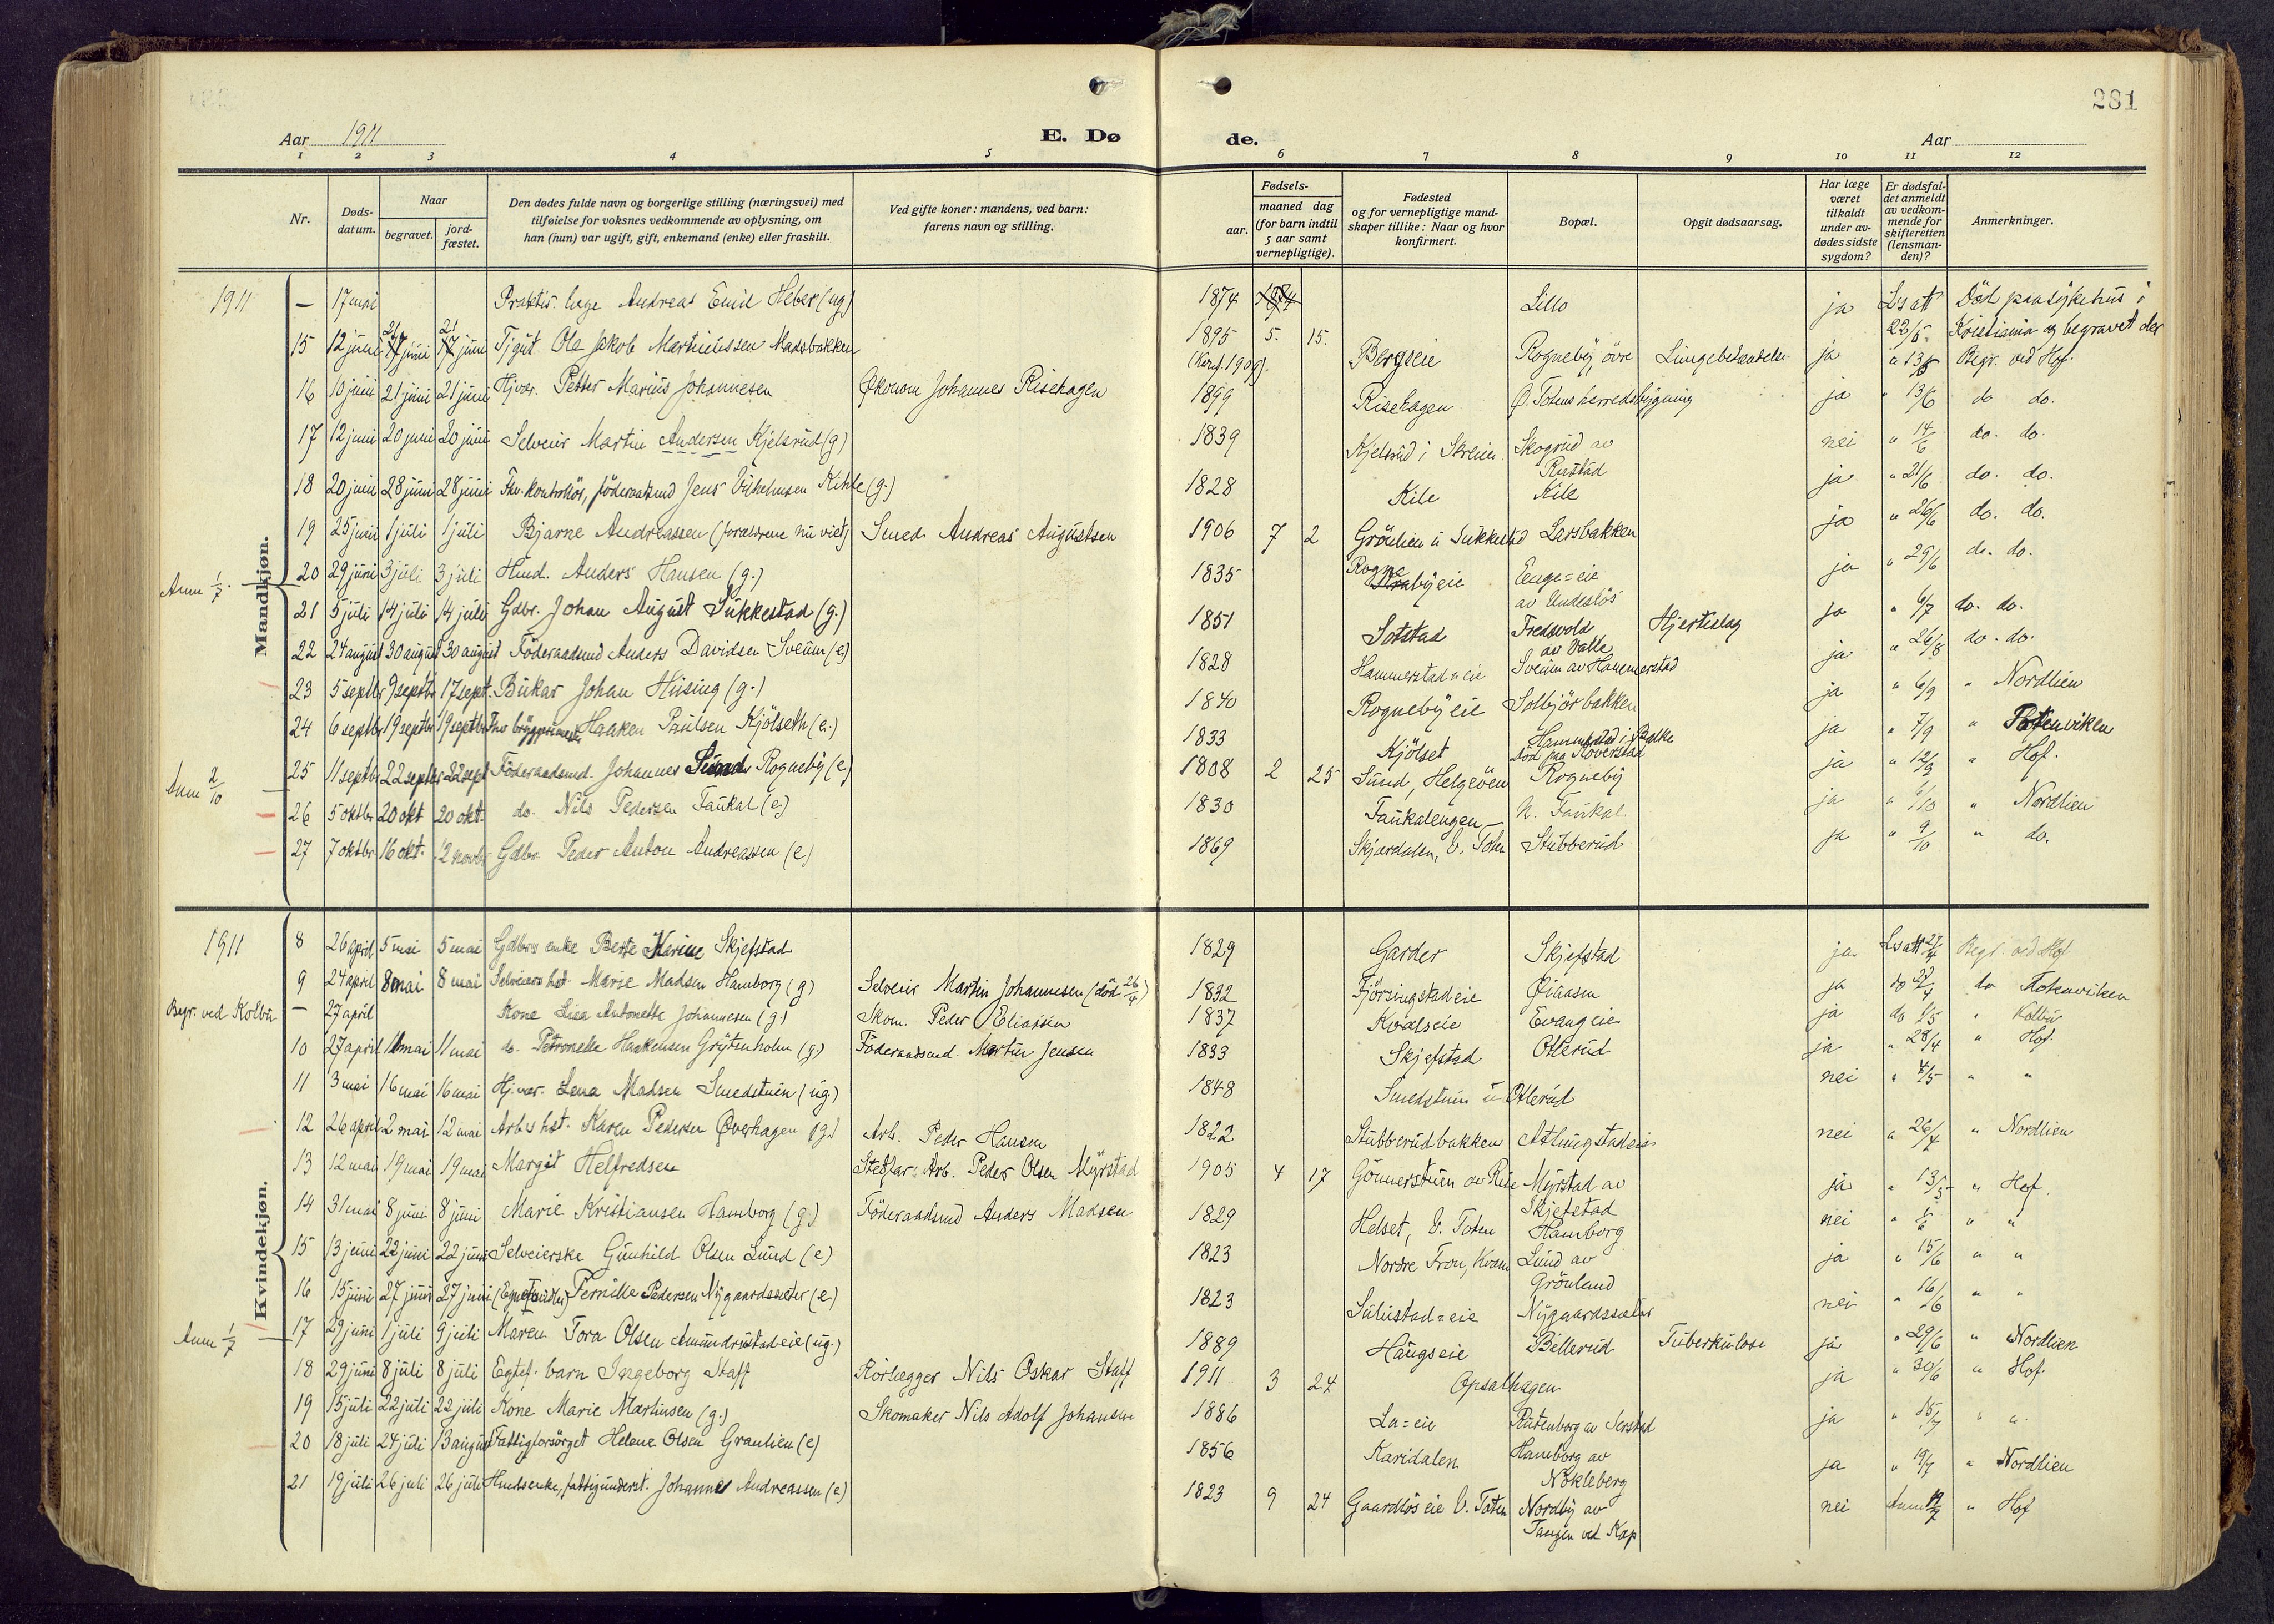 281
Aar 1911
E. Dø
de.
Aar
1 2 3 4 5 6 7 8 9 10 11 12
Nr.
Døds-datum.
Naar
begravet.
jord-fæstet.
Den dødes fulde navn og borgerlige stilling (næringsvei) med
tilføielse for voksnes vedkommende av oplysning, om
han (hun) var ugift, gift, enkemand (enke) eller fraskilt.
Ved gifte koner: mandens, ved barn:
farens navn og stilling.
Fødsels-
aar.
maaned dag
(for barn indtil
5 aar samt
vernepligtige).
Fødested
og for vernepligtige mand-
skaper tillike: Naar og hvor
konfirmert.
Bopæl.
Opgit dødsaarsag.
Har læge
været
tilkaldt
under av-
dødes sidste
sygdom?
Er dødsfal-
det anmeldt
av vedkom-
mende for
skifteretten
(lensman-
den)?
Anmerkninger.
Mandkjøn.
1911 — 17 mai Praktis. læge Andreas Emil Heber (ug) 1874 Lillo ja Ls att 22/5 Död paa sykehus i Kristiania og begravet der
15 12 juni 21 juni 21 juni Tjgut Ole Jakob Martinussen Madsbakken 1895 5. 15. (Konf. 1909) Bergseie Rogneby, övre Lungebetændelse ja " 13/6 Begr. ved Hof.
16 10 juni 21 juni 21 juni Hjvær. Petter Marius Johannesen Økonom Johannes Risehagen 1899 Risehagen Ø. Totens herredsbygning ja " 13/6 do do.
17 12 juni 20 juni 20 juni Selveier Martin Andersen Kjelsrud (g) 1839 Kjelsrud i Skreien Skogrud av Rustad nei " 14/6 do. do.
18 20 juni 28 juni 28 juni Fhv. kontrollör, föderaadsmd Jens Vilhelmsen Kihle (g.) 1828 Kile Kile ja " 21/6 do. do.
19 25 juni 1 juli 1 juli Bjarne Andreassen (forældrene nu viet) Smed Andreas Augustsen 1906 7 2 Grönlien u Sukkestad Larsbakken ja " 26/6 do. do.
Anm 1/7 20 29 juni 3 juli 3 juli Hmd. Anders Hansen (g.) 1835 Rognebyeie Enge=eie av Undeslös ja " 29/6 do. do.
21 5 juli 14 juli 14 juli Gdbr. Johan August Sukkestad (g.) 1851 Sotstad Fredsvold av Valle Hjerteslag ja " 6/7 do. do.
22 24 august 30 august 30 august Föderaadsmd Anders Davidsen Sveum (e) 1828 Hammerstad=eie Sveum av Hammerstad ja " 26/8 do. do.
23 5 septbr 9 septbr 17 sept. Bukar Johan Hising (g.) 1840 Rognebyeie Solbjörbakken ja " 6/9 " Nordlien
24 6 septbr 19 septbr 19 septbr Fhv bryggerimester Haaken Paulsen Kjölseth (e.) 1833 Kjölset Hammerstad i Balke Död paa Hoverstad ja " 7/9 " Totenviken
25 11 septbr 22 septbr 22 sept Föderaadsmd. Johannes Sund Rogneby (e) 1808 2 25 Sund, Helgeöen Rogneby ja " 12/9 " Hof.
Anm 2/10 26 5 oktbr 20 okt 20 okt. do. Nils Pedersen Faukal (e) 1830 Faukalengen N. Faukal ja " 6/10 " Nordlien
27 7 oktbr 16 okt. 12 novb Gdbr. Peder Anton Andreassen (e) 1869 Skjærdalen, V. Toten Stubberud ja " 9/10 " do.
Kvindekjøn.
1911 8 26 april 5 mai 5 mai Gdbrs enke Berte Karine Skjefstad 1829 Garder Skjefstad ja Ls att 27/4 Begr. ved Hof
9 24 april 8 mai 8 mai Selveiers hst. Marie Madsen Hamborg (g) Selveier Martin Johannesen (död 26/4) 1832 Fjöringstadeie Øiaasen ja do 27/4 do Totenviken
Begr. ved Kolbu — 27 april Kone Lisa Antonette Johannesen (g) Skom. Peder Eliassen 1837 Kvalseie Evangeie ja do 1/5 " Kolbu
10 27 april 11 mai 11 mai do. Petronelle Haakensen Grytenholm (g.) Föderaadsmd. Martin Jensen 1833 Skjefstad Otterud ja " 28/4 " Hof.
11 3 mai 16 mai 16 mai Hj.vær. Lena Madsen Smedstuen (ug.) 1848 Smedstuen u Otterud nei " 4/5 " "
12 26 april 2 mai 12 mai Arb's hst. Karen Pedersen Øverhagen (g.) Arb. Peder Hansen 1822 Stubberudbakken Alhugstadeie nei " 26/4 " Nordlien
13 12 mai 19 mai 19 mai Margit Helfredsen Stedfar: Arb. Peder Olsen Myrstad 1905 4 17 Gönnerstuen av Rise Myrstad av Skjefstad ja " 13/5 " Hof.
14 31 mai 8 juni 8 juni Marie Kristiansen Hamborg (g.) Föderaadsmd Anders Madsen 1829 Helset, V. Toten Hamborg nei " 1/6 " "
15 13 juni 22 juni 22 juni Selveierske Gunhild Olsen Lund (e) 1823 Nordre Fron, Kvam Lund av Grönland ja " 15/6 " "
16 15 juni 27 juni 27 juni Pernille Pedersen Nygaardssæter (e) 1823 Sulustad=eie Nygaardssæter nei " 16/6 " "
Anm 1/7 17 29 juni 1 juli 9 juli Maren Tora Olsen Amundrustadeie (ug.) 1889 Haugseie Billerud Tuberkulose ja " 29/6 " Nordlien
18 29 juni 8 juli 8 juli Egtef. barn Ingeborg Staff Rörlegger Nils Oskar Staff 1911 3 24 Opsalhagen ja " 30/6 " Hof.
19 15 juli 22 juli 22 juli Kone Marie Martinsen (g.) Skomaker Nils Adolf Johansen 1886 La=eie Rutenborg av Jerstad ja " 15/7 " "
20 18 juli 24 juli 13 august Fattigforsörget Helene Olsen Graulien (e) 1856 Karidalen Hamborg av Nökleberg ja " 19/7 " Nordlien
21 19 juli 26 juli 26 juli Hmdsenke, fattigunderst. Johanne Andreassen (e) 1823 9 24 Gaardlöseie V. Toten Nordby av Tangen ved Kap nei Anm 19/7 " Hof